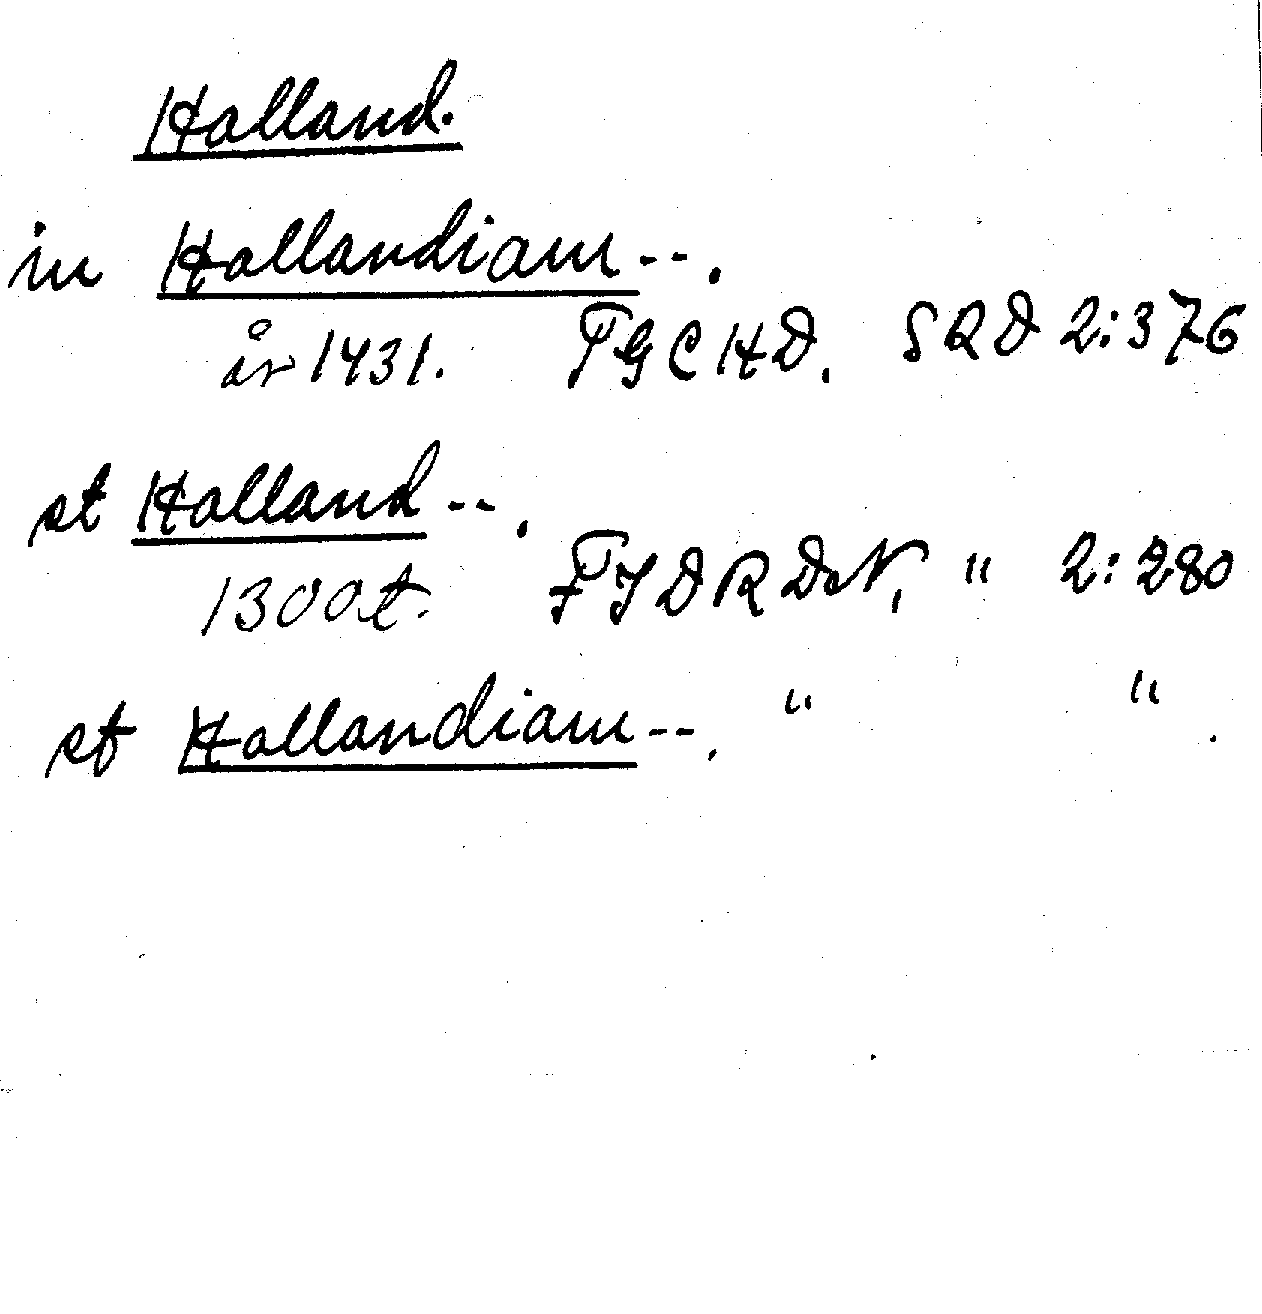 Halland.
in Hallandiam --.
år 1431. PGCHD. SRD 2:376
st Halland --.
1300t. FJDRDN, " 2:280
st Hallandiam --. " " .